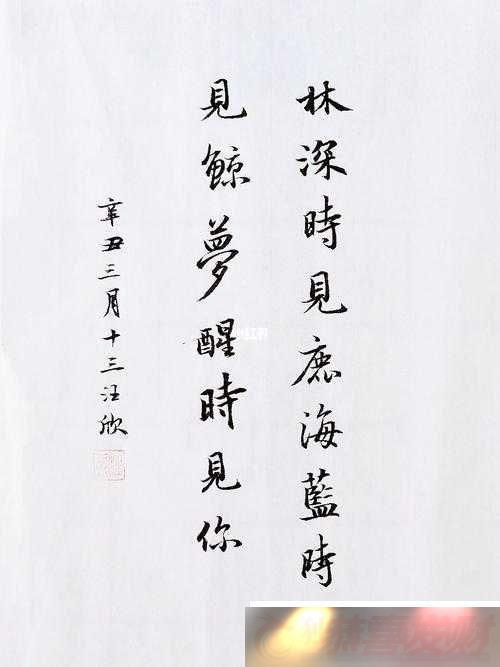 林深時見鹿海藍時
見鯨夢醒時見你
辛丑三月十三汪欣